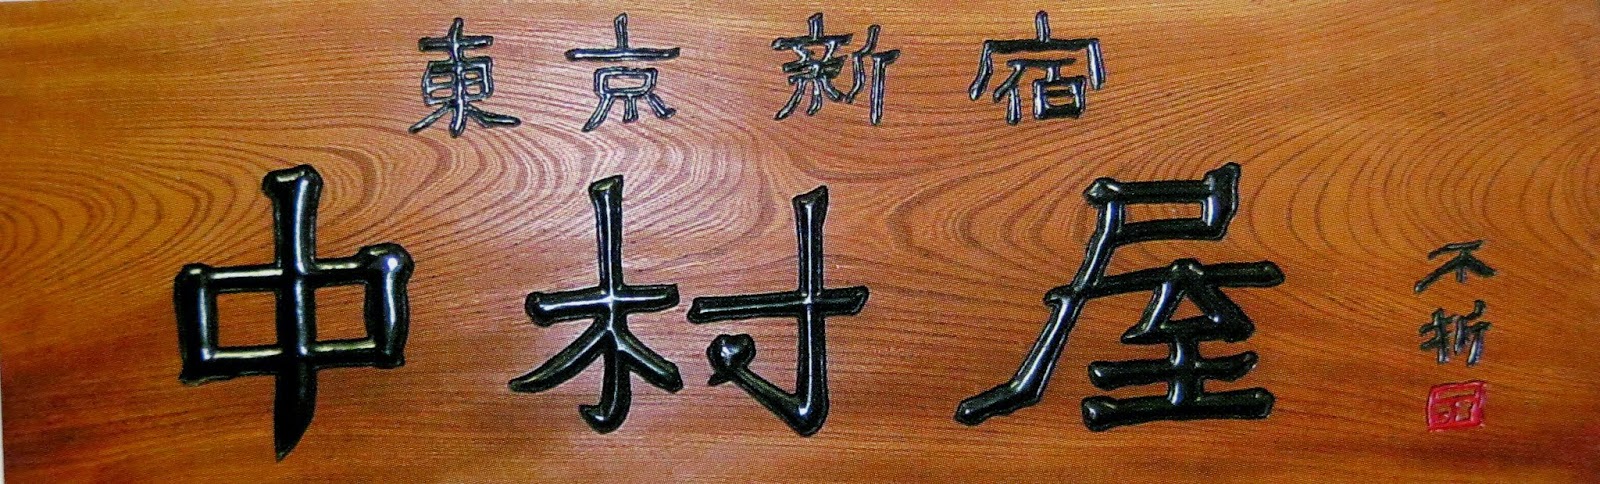 東京新宿
中村屋
不折